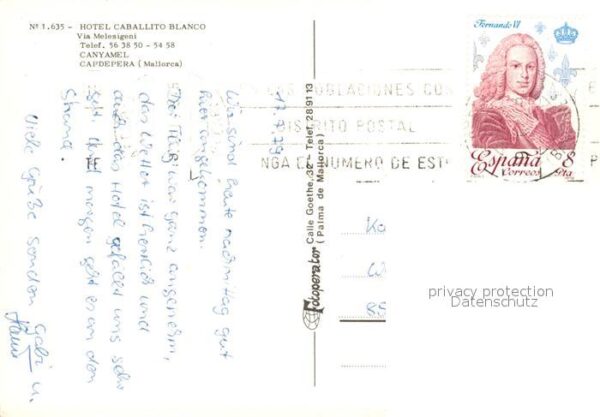 Nº 1.635 - HOTEL CABALLITO BLANCO
Via Melesigeni
Telef. 56 38 50 - 54 58
CANYAMEL
CAPDEPERA (Mallorca)
17.7.79
Wir sind heute nachmittag gut
hier angekommen.
Der Flug war ganz angenehm,
das Wetter ist herrlich und
auch das Hotel gefällt uns sehr
gut. Und morgen geht es an den
Strand.
Viele Grüße senden Gabi u.
Fotoperator Calle Goethe, 32 - Telef. 28 91 13
(Palma de Mallorca)
EN LAS POBLACIONES CON
DISTRITO POSTAL
NGA EL NUMERO DE ESTE
Fernando VI
España 8
Correos Pta
privacy protection
Datenschutz